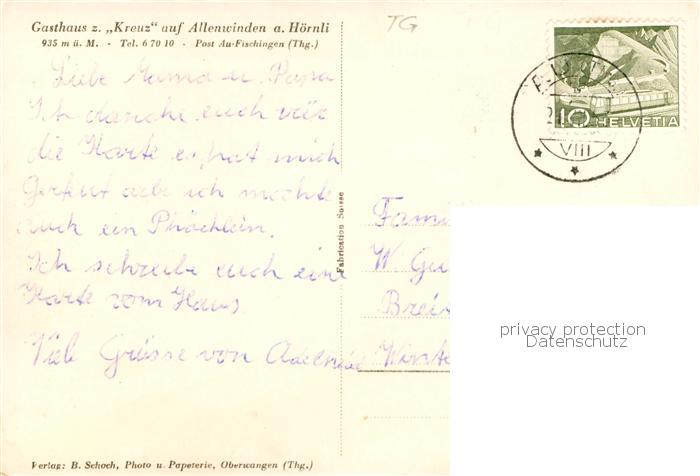 Gasthaus z. „Kreuz" auf Allenwinden a. Hörnli
935 m ü. M. - Tel. 6 70 10 - Post Au-Fischingen (Thg.)
TG
10 HELVETIA
VIII
Liebe Mama u. Papa
Ich danche euch vür
die Karte es hat mich
Gefeut aber ich möchte
auch ein Phöchlein.
Ich schreibe euch eine
Karte vom Haus
Viele Grüsse von
Fabrication Suisse
Fami
W. Gu
Breit
Winte
privacy protection
Datenschutz
Verlag: B. Schoch, Photo u. Papeterie, Oberwangen (Thg.)